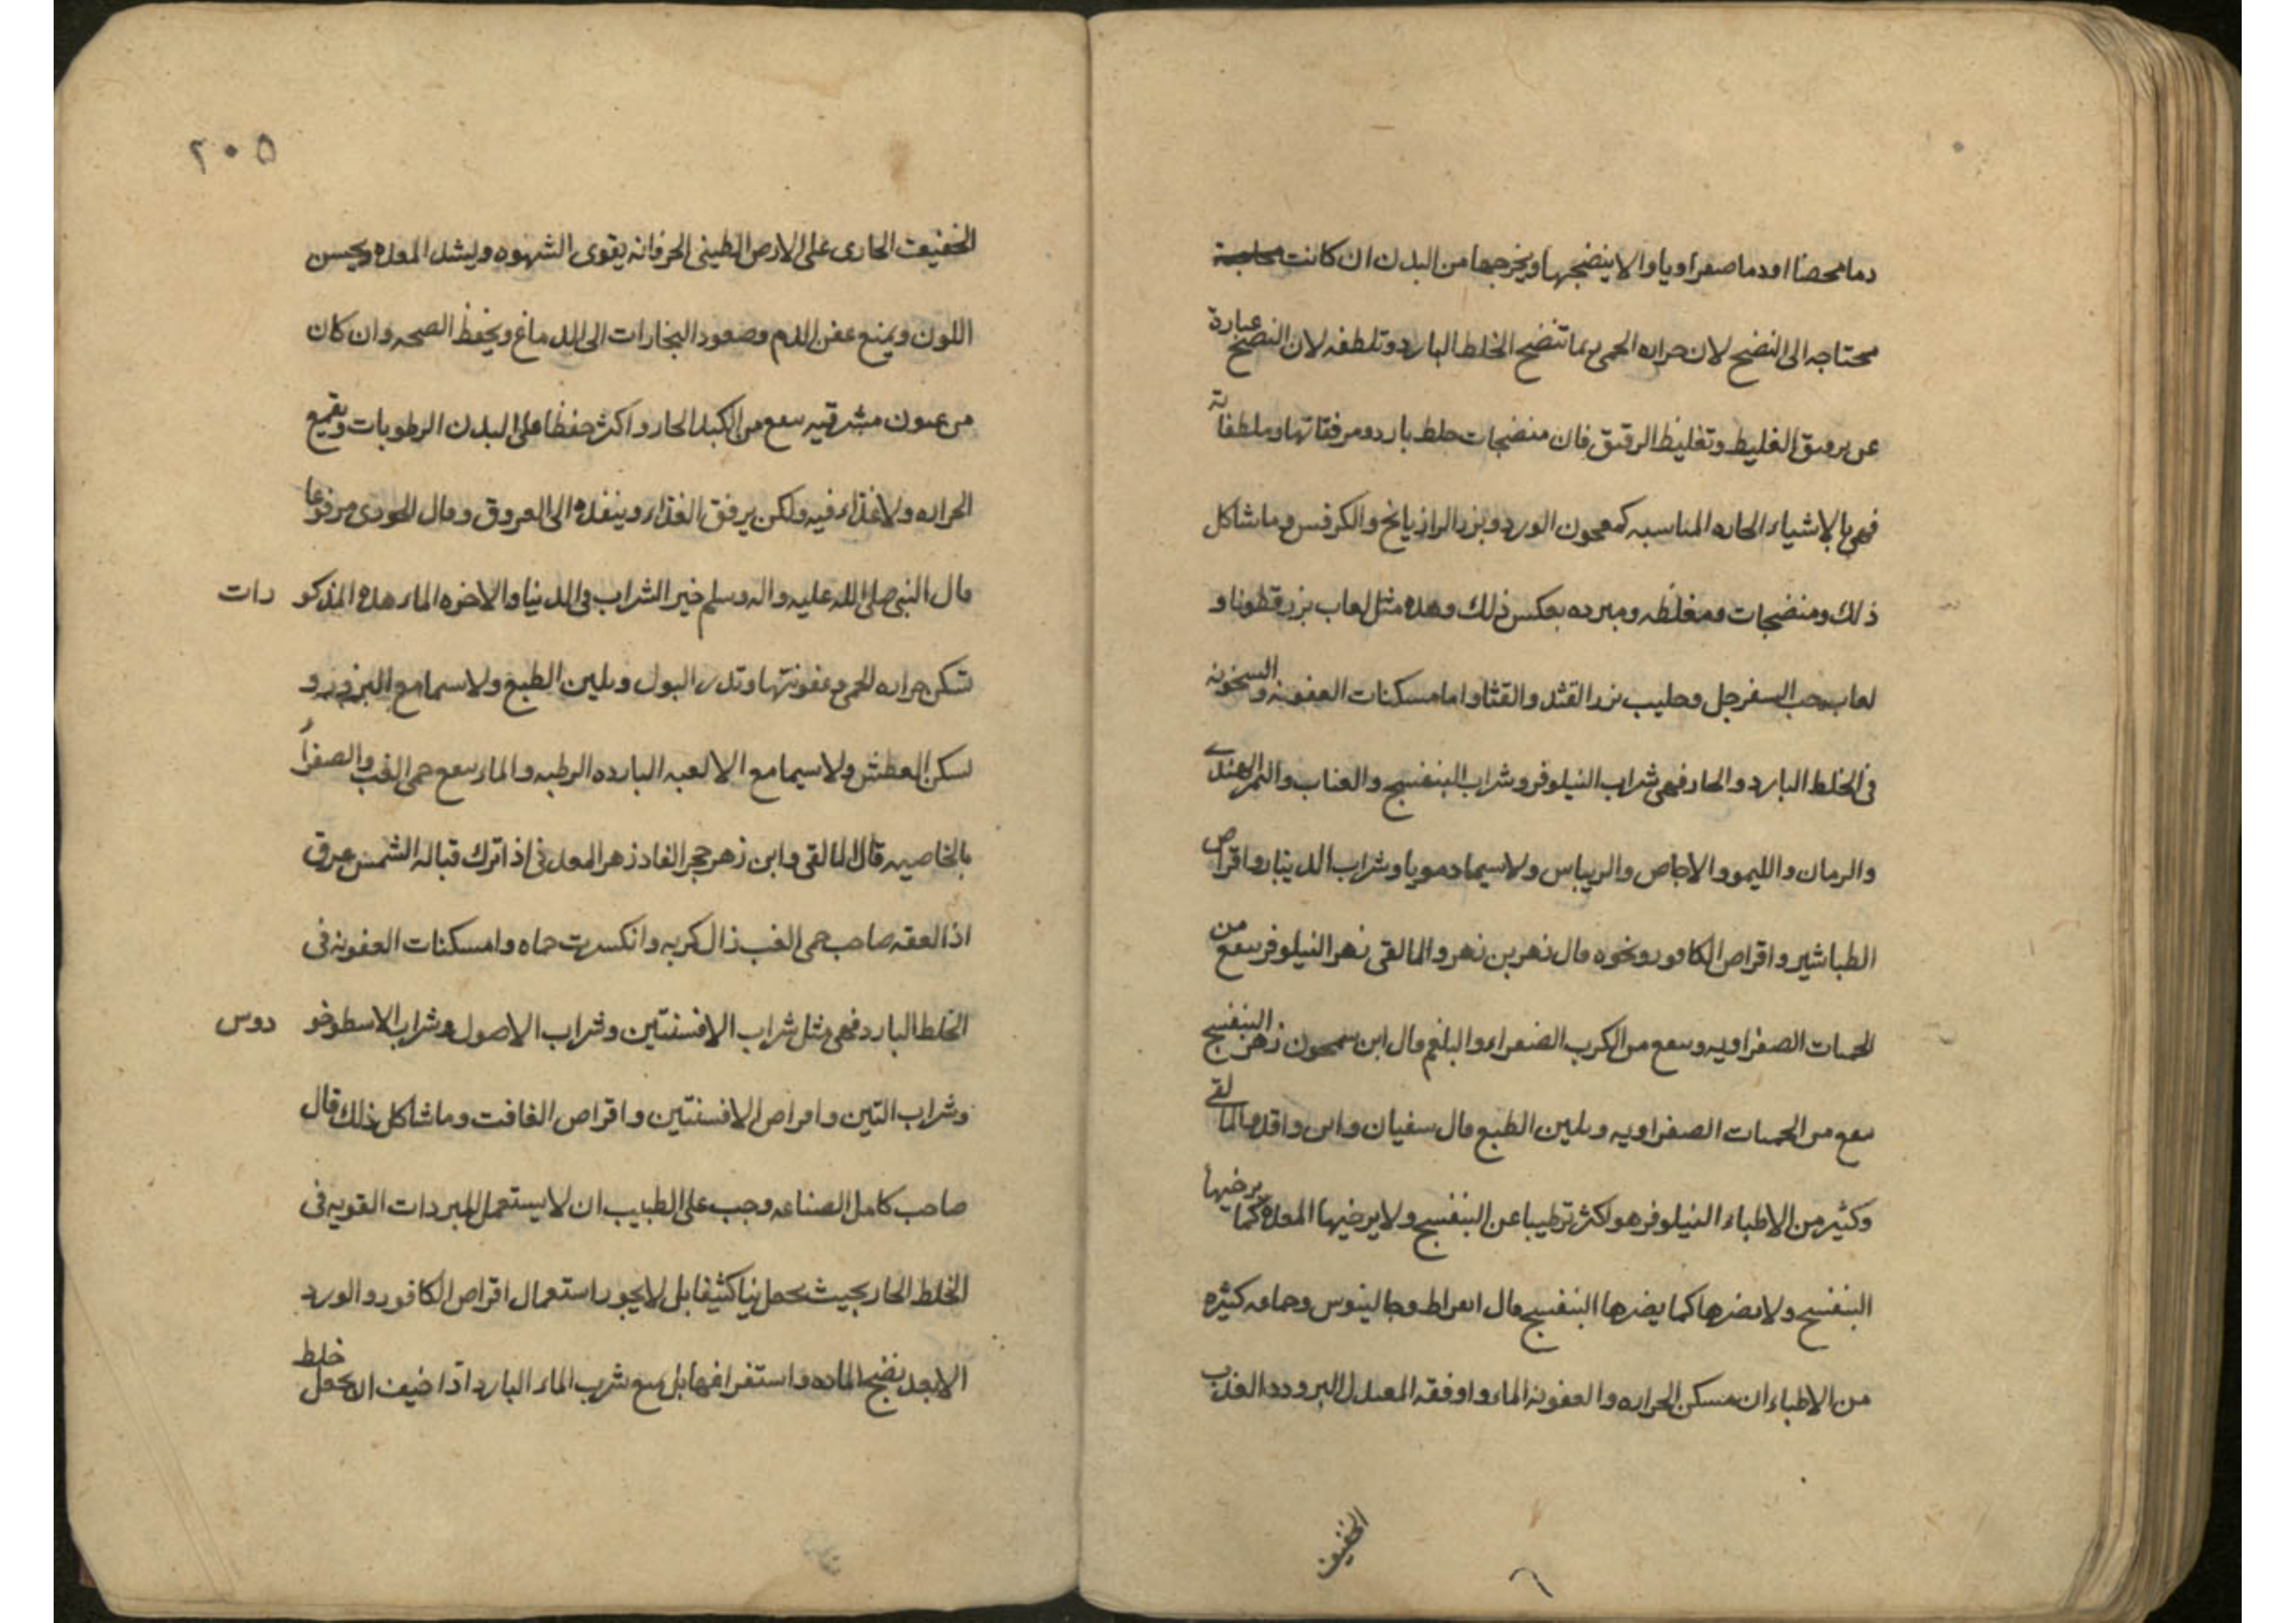 دما محضا اودما صفراويا والا ينضجها ويخرجها من البدن ان كانت
محتاجه الى النضج لان حراره الحمى بما تنضح الخلط البارد وتلطفه لان النضح عبارة
عن برقىق الغليط وتغليظ الرقىق فان منضجات خلط بارد ومرققاتها وملطفاته
فهى بالاشياء الحاره المناسبه كمعجون الورد وبزر الرازيانج والكرفس وما شاكل
ذلك ومنضجات ومغلظه ومبرده بعكس ذلك وهذه مثل لعاب بزر قطونا و
لعاب حب السفرجل وحليب بزر القثد والقثا واما مسكنات العفونه والسخونه
فى الخلط البارد والحار فهى شراب النيلوفر وشراب البنفسج والعناب والتمر الهندى
والرمان والليمو والاجاص والريباس ولاسيما دمويا وشراب الدينار واقراص
الطباشير واقراص الكافور ونحوه مال زهر بن زهر والمالقى زهر النيلوفر سفع من
الحمىات الصفراويه وسفع من الكرب الصفراء والبلغم مال ابن سمحون زهر البنفسج
سفع من الحمىات الصفراويه وىلىىن الطبع مال سفيان وابن واقد مالمالقى
وكثير من الاطباء النيلوفر هو اكثر ترطيبا عن البنفسج ولا يرخيها المعده كما يرخيها
البنفسج ولا ىضرها كما يضرها البنفسج مال ابقراط وجالينوس وجماعه كثيره
من الاطباء ان مسكن الحراره والعفونه الماء واوفقه المعتدل البرودد العذب
الخفيف
٢٠٥
الخفيف الجارى على الارض الطينى الحر فانه يقوى الشهوه ويشد المعده ويحسن
اللون ويمنع عفن الدم وصعود البخارات الى الدماغ ويحفظ الصحه وان كان
من عىون مشرقيه سفع من الكبد الحار واكثر حفظا على البدن الرطوبات ويقمع
الحراره ولا غذاء فيه ولكن يرقق الغذاء وينفذه الى العروق ومال الجوزى مرفوعا
مال النبى صلى الله عليه واله وسلم خير الشراب فى الدنيا والاخره الماء هذه المذكو رات
تسكن حراره الحمى وعفونتها وتدر البول وىلىين الطبع ولاسيما مع البزور و
تسكن العطش ولاسيما مع الالعبه البارده الرطبه والماء سفع حمى الغب والصفرآ
بالخاصيه قال المالقى وابن زهر حجر الفادزهر المعدنى اذا ترك قباله الشمس عرق
اذا لعقه صاحب حمى الغب زال كربه وانكسرت حماه واما مسكنات العفونه فى
الخلط البارد فهى مثل شراب الافسنتين وشراب الاصول وشراب الاسطوخو دوس
وشراب التين واقراص الافسنتين واقراص الغافت وما شاكل ذلك قال
صاحب كامل الصناعه وجب على الطبيب ان لا يستعمل المبردات القويه فى
الخلط الحار بحيث يحعل نيا كثيفا بل لا يجور استعمال اقراص الكافور والورد
الا بعد نضج الماده واستفراغها بل يمنع شرب الماء البارد اذا خيف ان يجعل خلط